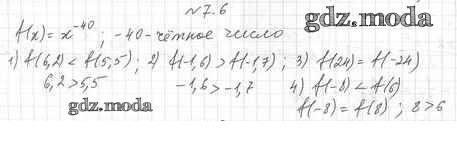 №7.6
gdz.moda
f(x) = x^{-40} ; -40 - чётное число
1) f(6,2) < f(5,5) ; 2) f(-1,6) > f(-1,7) ; 3) f(24) = f(-24)
6,2 > 5,5   -1,6 > -1,7   4) f(-8) < f(6)
gdz.moda
f(-8) = f(8) ; 8 > 6